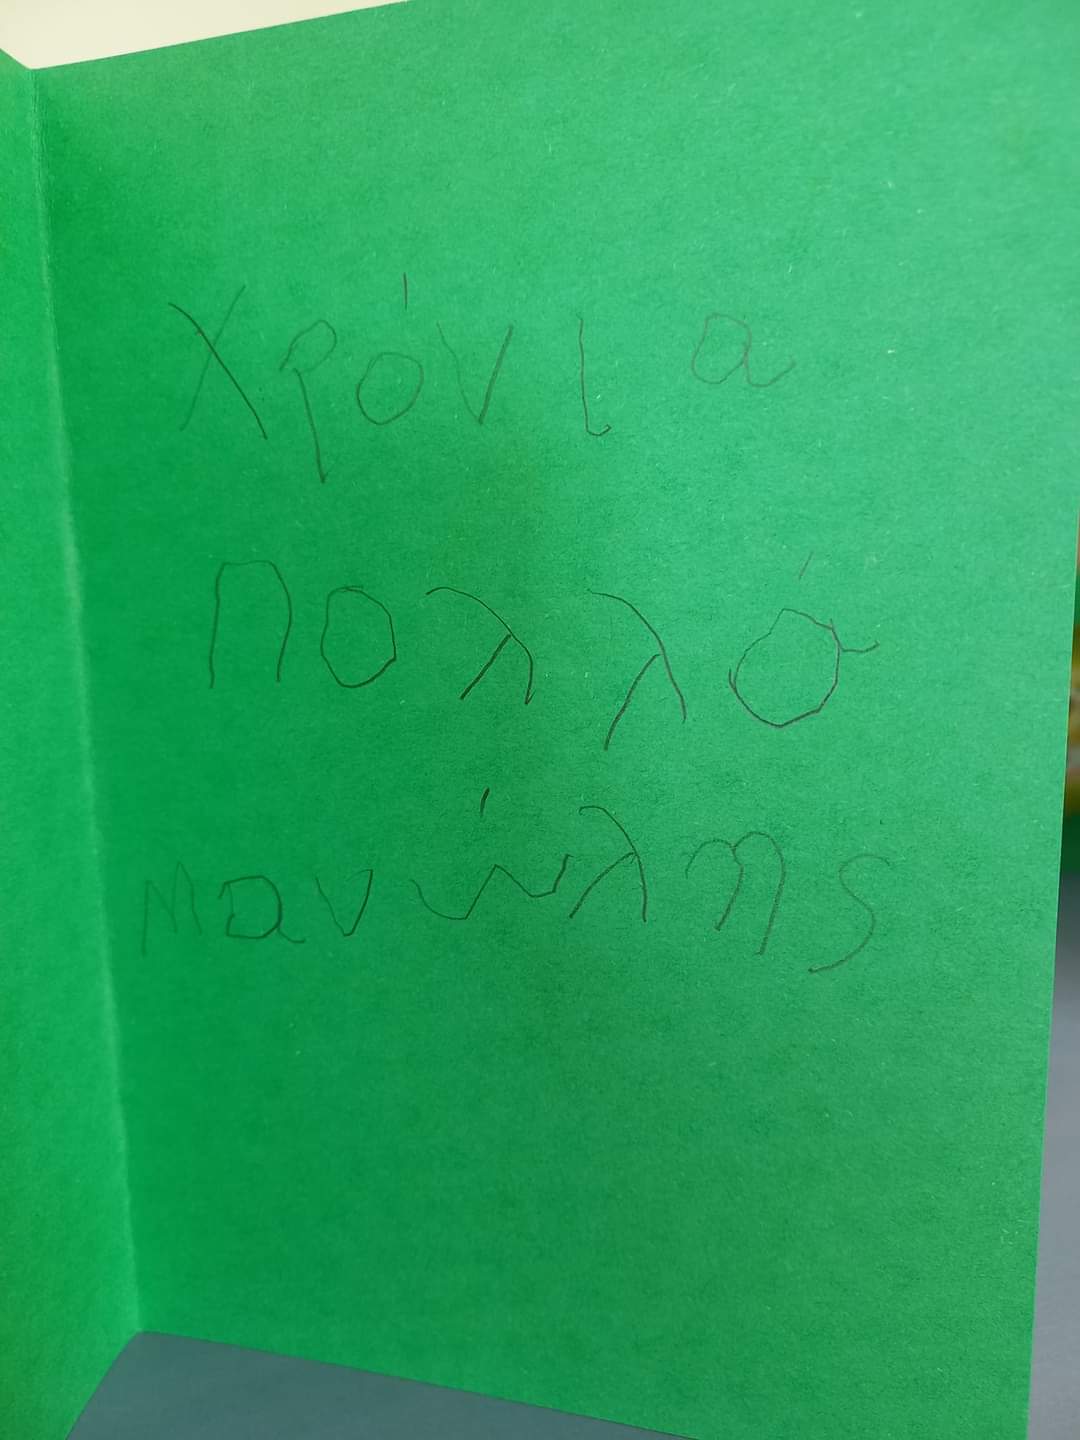 Χρόνια
Πολλά
Μανώλης